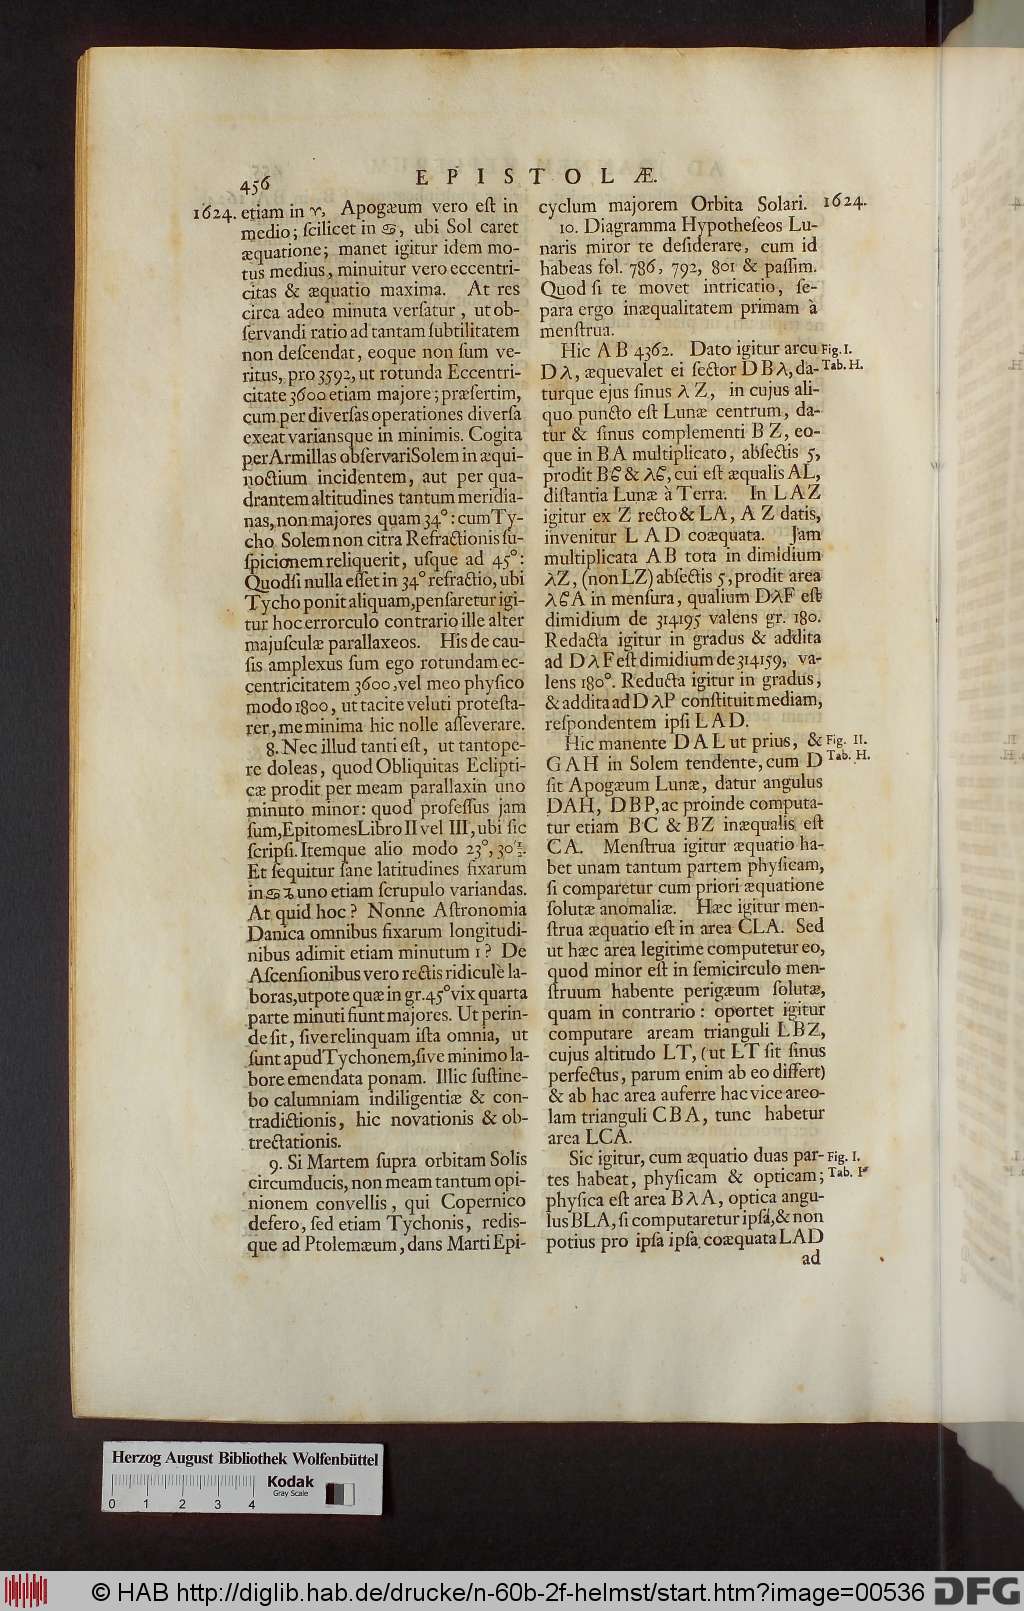 456
EPISTOLÆ.
1624. etiam in ♈, Apogæum vero eſt in
medio; ſcilicet in ♋, ubi Sol caret
æquatione; manet igitur idem mo-
tus medius, minuitur vero eccentri-
citas & æquatio maxima. At res
circa adeo minuta verſatur, ut ob-
ſervandi ratio ad tantam ſubtilitatem
non deſcendat, eoque non ſum ve-
ritus, pro 3592, ut rotunda Eccentri-
citate 3600 etiam majore; præſertim,
cum per diverſas operationes diverſa
exeat variansque in minimis. Cogita
per Armillas obſervari Solem in æqui-
noctium incidentem, aut per qua-
drantem altitudines tantum meridia-
nas, non majores quam 34°: cum Ty-
cho Solem non citra Refractionis ſu-
ſpicionem reliquerit, uſque ad 45°:
Quodſi nulla eſſet in 34° refractio, ubi
Tycho ponit aliquam, penſaretur igi-
tur hoc errorculo contrario ille alter
majuſculæ parallaxeos. His de cau-
ſis amplexus ſum ego rotundam ec-
centricitatem 3600, vel meo phyſico
modo 1800, ut tacite veluti proteſta-
rer, me minima hic nolle aſſeverare.
8. Nec illud tanti eſt, ut tantope-
re doleas, quod Obliquitas Eclipti-
cæ prodit per meam parallaxin uno
minuto minor: quod profeſſus jam
ſum, Epitomes Libro II vel III, ubi ſic
ſcripſi. Itemque alio modo 23°, 30½.
Et ſequitur ſane latitudines fixarum
in ♋ ♑ uno etiam ſcrupulo variandas.
At quid hoc? Nonne Aſtronomia
Danica omnibus fixarum longitudi-
nibus adimit etiam minutum 1? De
Aſcenſionibus vero rectis ridicule la-
boras, utpote quæ in gr. 45° vix quarta
parte minuti fiunt majores. Ut perin-
de ſit, ſive relinquam iſta omnia, ut
ſunt apud Tychonem, ſive minimo la-
bore emendata ponam. Illic ſuſtine-
bo calumniam indiligentiæ & con-
tradictionis, hic novationis & ob-
trectationis.
9. Si Martem ſupra orbitam Solis
circumducis, non meam tantum opi-
nionem convellis, qui Copernico
deſero, ſed etiam Tychonis, redis-
que ad Ptolemæum, dans Marti Epi-
cyclum majorem Orbita Solari. 1624.
10. Diagramma Hypotheſeos Lu-
naris miror te deſiderare, cum id
habeas fol. 786, 792, 801 & paſſim.
Quod ſi te movet intricatio, ſe-
para ergo inæqualitatem primam à
menſtrua.
Hic AB 4362. Dato igitur arcu Fig. I.
Dλ, æquevalet ei ſector DBλ, da- Tab. H.
turque ejus ſinus λ Z, in cujus ali-
quo puncto eſt Lunæ centrum, da-
tur & ſinus complementi BZ, eo-
que in BA multiplicato, abſectis 5,
prodit Bξ & λξ, cui eſt æqualis AL,
diſtantia Lunæ à Terra. In LAZ
igitur ex Z recto & LA, AZ datis,
invenitur LAD coæquata. Jam
multiplicata AB tota in dimidium
λZ, (non LZ) abſectis 5, prodit area
λξA in menſura, qualium DλF eſt
dimidium de 314195 valens gr. 180.
Redacta igitur in gradus & addita
ad DλF eſt dimidium de 314159, va-
lens 180°. Reducta igitur in gradus,
& addita ad DλP conſtituit mediam,
reſpondentem ipſi LAD.
Hic manente DAL ut prius, & Fig. II.
GAH in Solem tendente, cum D Tab. H.
ſit Apogæum Lunæ, datur angulus
DAH, DBP, ac proinde computa-
tur etiam BC & BZ inæqualis eſt
CA. Menſtrua igitur æquatio ha-
bet unam tantum partem phyſicam,
ſi comparetur cum priori æquatione
ſolutæ anomaliæ. Hæc igitur men-
ſtrua æquatio eſt in area CLA. Sed
ut hæc area legitime computetur eo,
quod minor eſt in ſemicirculo men-
ſtruum habente perigæum ſolutæ,
quam in contrario: oportet igitur
computare aream trianguli LBZ,
cujus altitudo LT, (ut LT ſit ſinus
perfectus, parum enim ab eo differt)
& ab hac area auferre hac vice areo-
lam trianguli CBA, tunc habetur
area LCA.
Sic igitur, cum æquatio duas par- Fig. I.
tes habeat, phyſicam & opticam; Tab. I
phyſica eſt area BλA, optica angu-
lus BLA, ſi computaretur ipſa, & non
potius pro ipſa ipſa coæquata LAD
ad
Herzog August Bibliothek Wolfenbüttel
0 1 2 3 4
Kodak
Gray Scale
© HAB http://diglib.hab.de/drucke/n-60b-2f-helmst/start.htm?image=00536
DFG